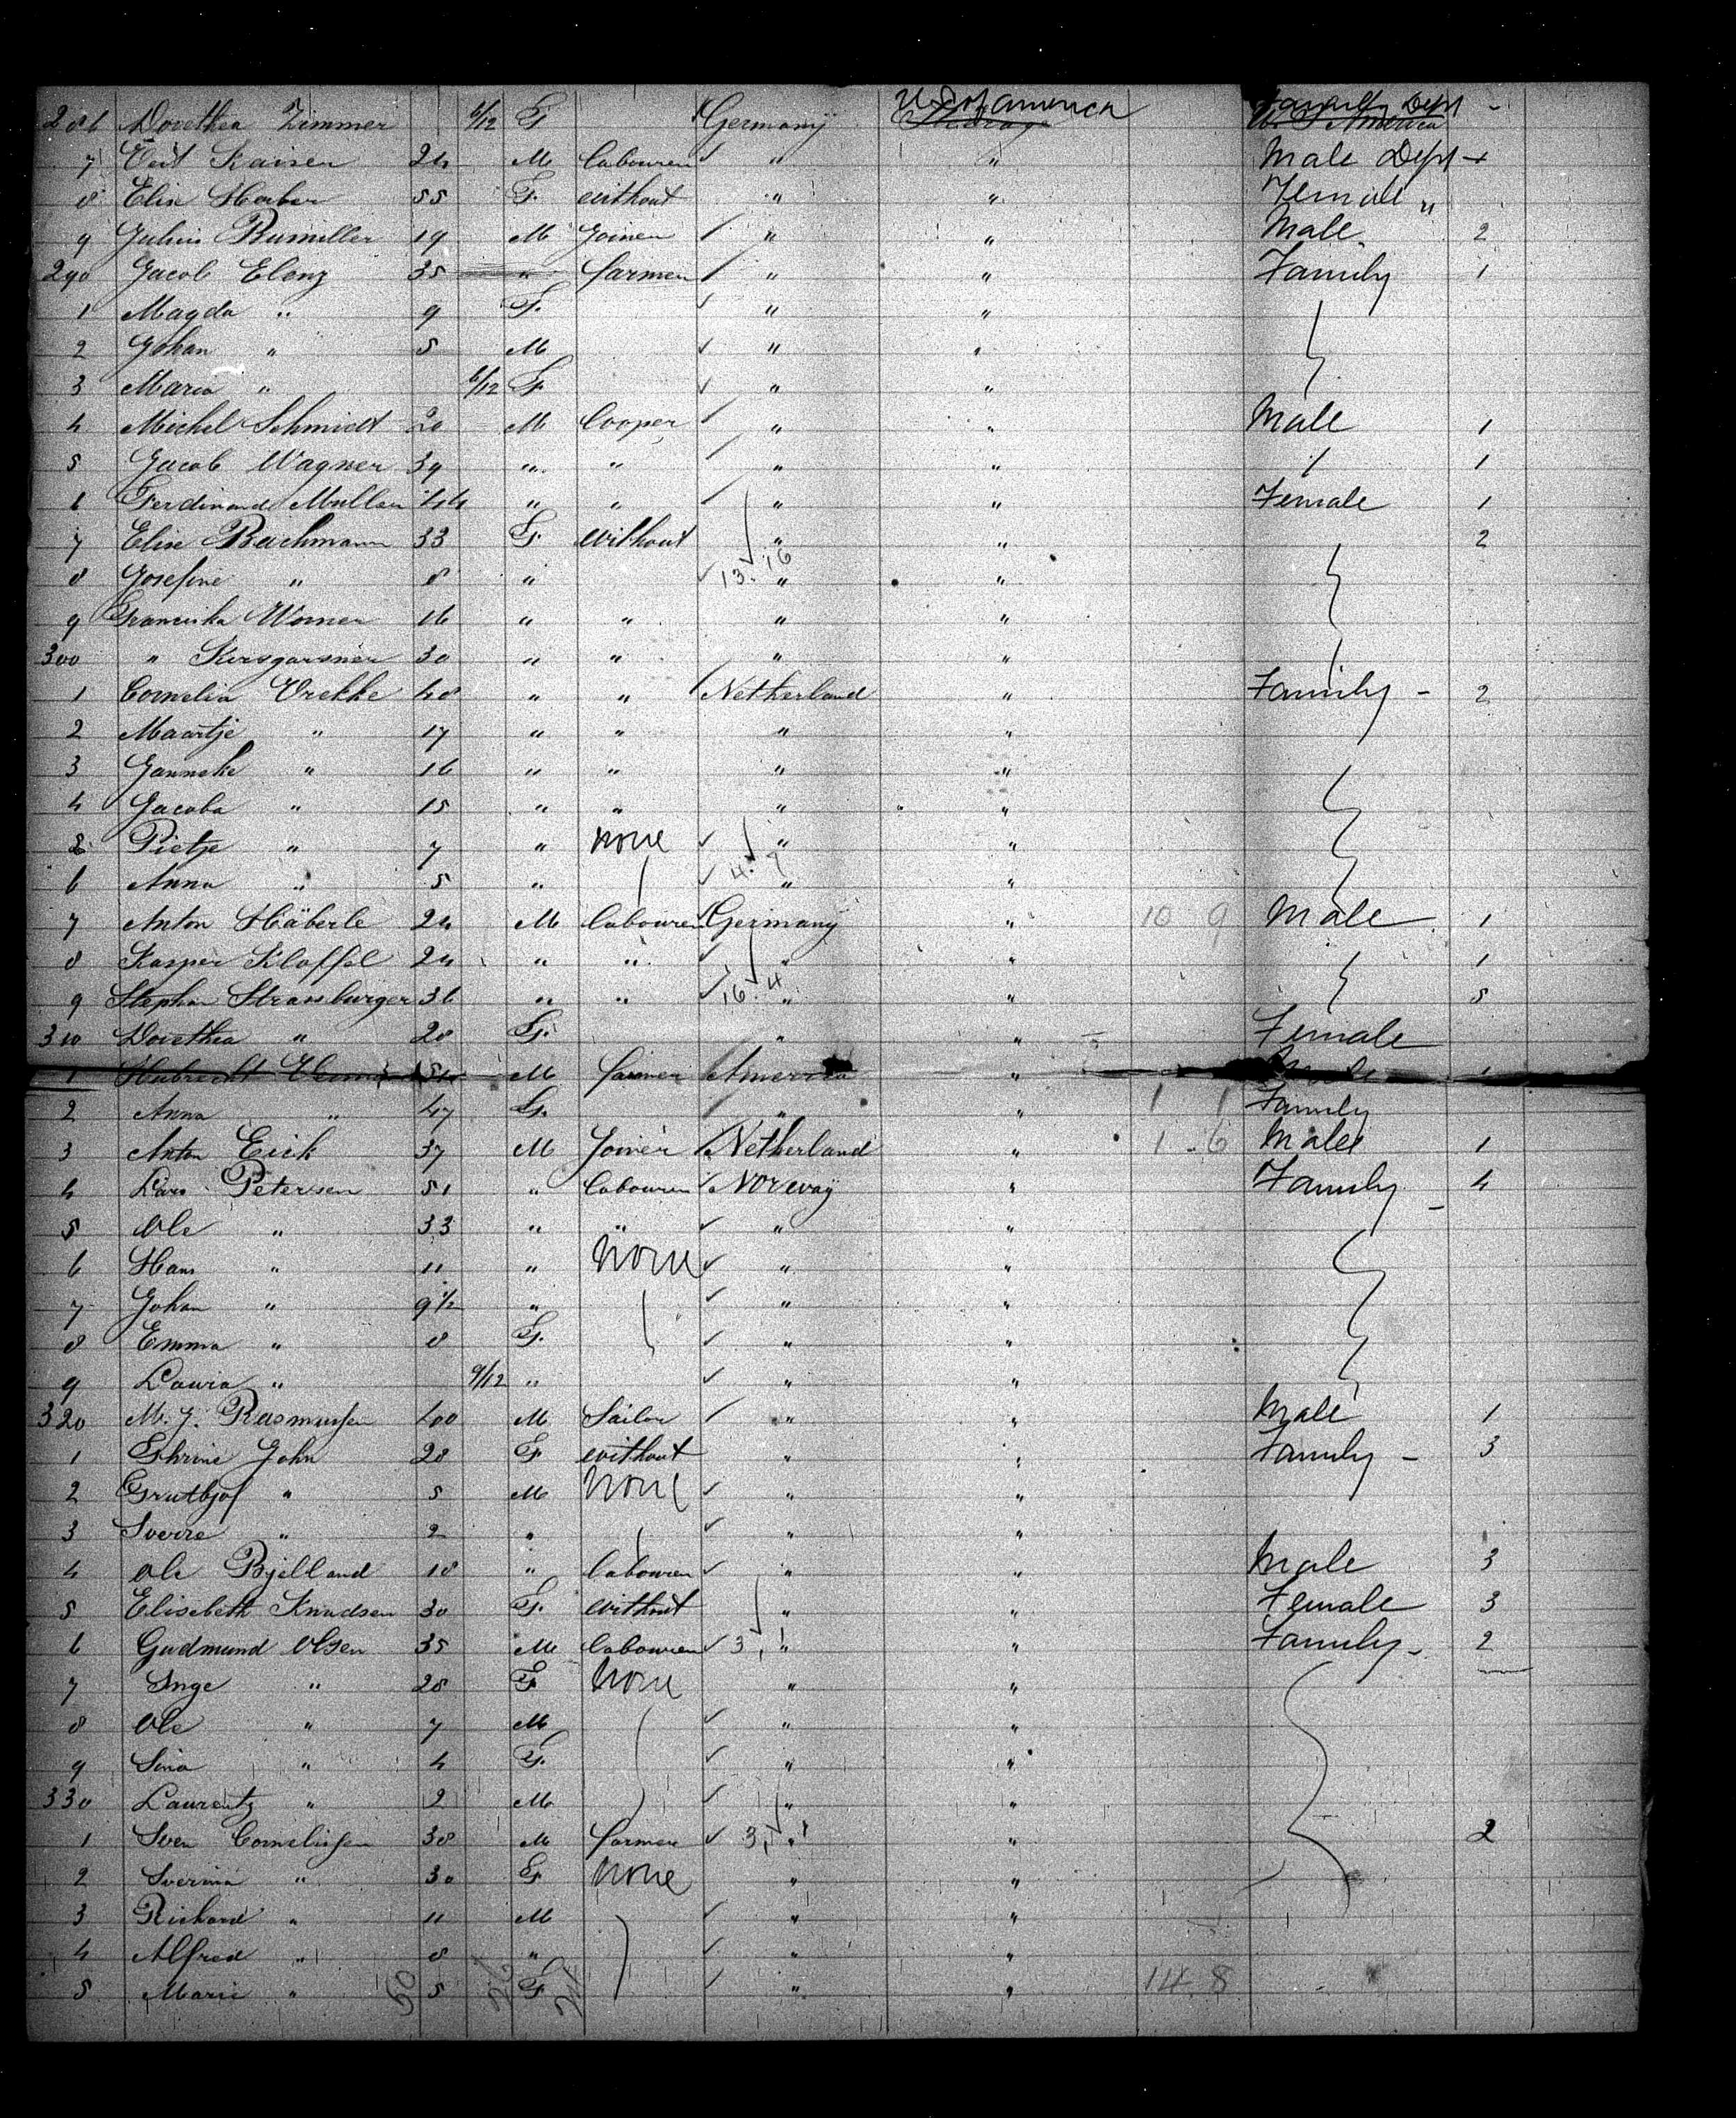 286 Dorethea Zimmer 6/12 F Germany U S of America Steerage Family Dept - U. S America
7 Veit Kaiser 24 M labourer " " Male Dept -
8 Elise 55 F. without " " Female "
9 Julius Rumiller 19 M Joiner " " Male 2
290 Jacob Elenz 35 " farmer " " Family 1
1 Magda " 9 F. " "
2 Johan " 5 M " "
3 Maria " 6/12 F " "
4 Michel Schmidt 20 M Cooper " " Male 1
5 Jacob Wagner 39 " " " " 1
6 Ferdinand Muller 44 " " " " Female 1
7 Elise Bachmann 33 F. without " " 2
8 Josefine " 8 " 13.16 " "
9 Franciska Worner 16 " " " "
300 " 30 " " " "
1 Cornelia Vrekke 48 " " Netherland " Family - 2
2 Maartje " 17 " " " "
3 Janneke " 16 " " " "
4 Jacoba " 15 " " " "
5 Pietje " 7 " none " "
6 Anna " 5 " 4.7 " "
7 Anton Häberle 24 M labourer Germany " 10 9 Male 1
8 Kasper Kloffel 24 " " " " 1
9 Stephan Strassburger 36 " " 16.4 " " 5
310 Dorethea " 28 F. " " Female
1 Hubrecht M farmer America " Male 1
2 Anna " 47 F. " " 1 1 Family
3 Anton Eick 37 M Joiner Netherland " 1 6 Male 1
4 Lars Petersen 51 " labourer Norway " Family 4
5 Ole " 33 " " " "
6 Hans " 11 " None " "
7 Johan " 9 1/2 " " "
8 Emma " 8 F. " "
9 Laura " 9/12 " " "
320 M. J. Rasmussen 40 M Sailor " " Male 1
1 John 28 F without " " Family - 3
2 " 5 M None " "
3 Sverre " 2 " " "
4 Ole Bjelland 18 " labourer " " Male 3
5 Elisebeth Knudsen 30 F. without " " Female 3
6 Gudmund Olsen 35 M labourer 3, 1 " " Family - 2
7 Inge " 28 F None " "
8 Ole " 7 M " "
9 Sina " 4 F. " "
330 Laurentz " 2 M " "
1 Sven Cornelissen 38 M farmer 3, 1 " " 2
2 Sverina " 30 F None " "
3 Richard " 11 M " "
4 Alfred " 8 " " "
5 Marie " 5 F " " 14 8
50 26 24